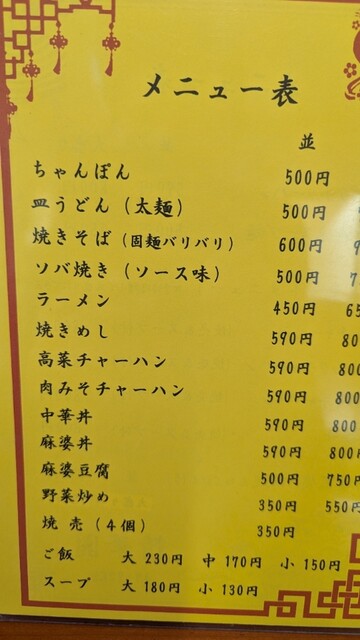 メニュー表
並
ちゃんぽん 500円
皿うどん（太麺） 500円
焼きそば（固麺バリバリ） 600円
ソバ焼き（ソース味） 500円
ラーメン 450円
焼きめし 590円 800
高菜チャーハン 590円 800
肉みそチャーハン 590円 800
中華丼 590円 800
麻婆丼 590円 800円
麻婆豆腐 500円 750円
野菜炒め 350円 550円
焼売（4個） 350円
ご飯 大 230円 中 170円 小 150円
スープ 大 180円 小 130円